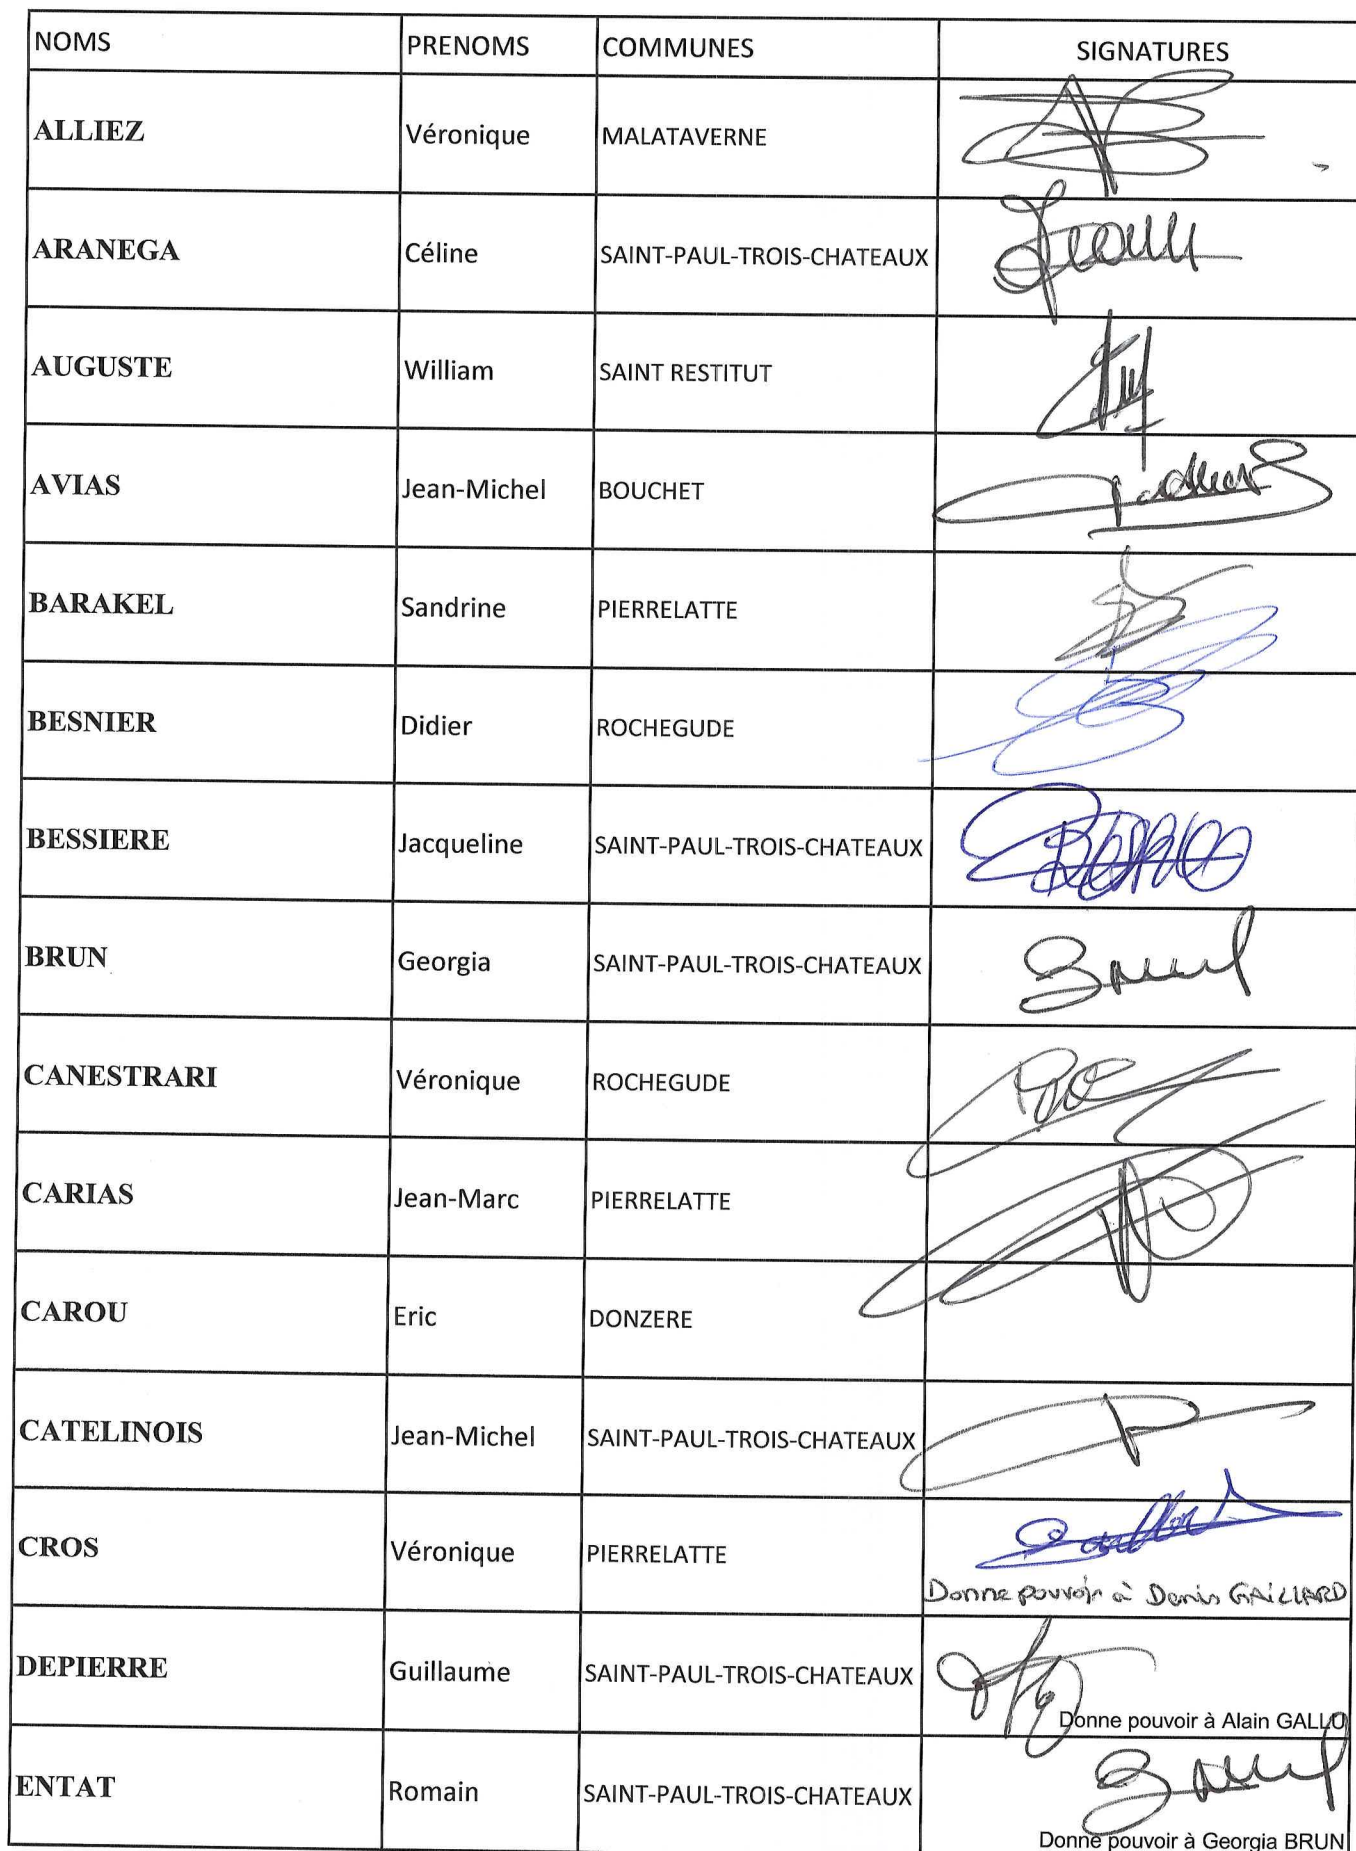 NOMS PRENOMS COMMUNES SIGNATURES
ALLIEZ Véronique MALATAVERNE
ARANEGA Céline SAINT-PAUL-TROIS-CHATEAUX
AUGUSTE William SAINT RESTITUT
AVIAS Jean-Michel BOUCHET
BARAKEL Sandrine PIERRELATTE
BESNIER Didier ROCHEGUDE
BESSIERE Jacqueline SAINT-PAUL-TROIS-CHATEAUX
BRUN Georgia SAINT-PAUL-TROIS-CHATEAUX
CANESTRARI Véronique ROCHEGUDE
CARIAS Jean-Marc PIERRELATTE
CAROU Eric DONZERE
CATELINOIS Jean-Michel SAINT-PAUL-TROIS-CHATEAUX
CROS Véronique PIERRELATTE
Donne pouvoir à Denis GAILLARD
DEPIERRE Guillaume SAINT-PAUL-TROIS-CHATEAUX
Donne pouvoir à Alain GALLU
ENTAT Romain SAINT-PAUL-TROIS-CHATEAUX
Donne pouvoir à Georgia BRUN